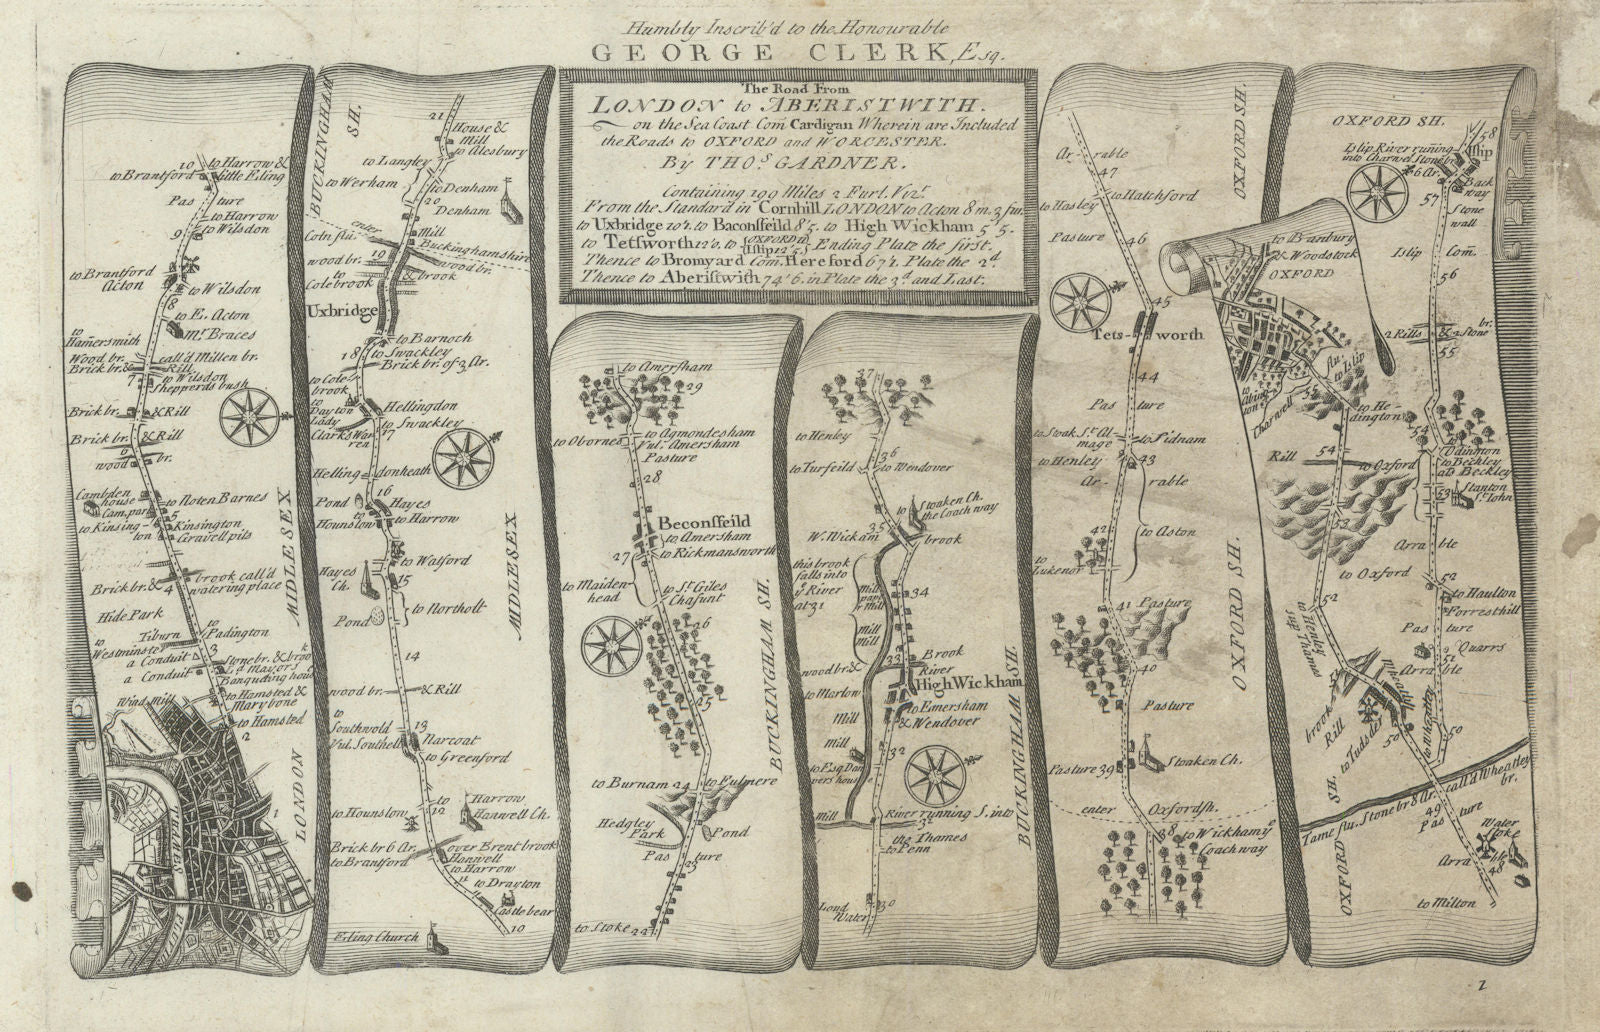 Humbly Inscrib'd to the Honourable
GEORGE CLERK, Esq.
The Road From
LONDON to ABERISTWITH.
on the Sea Coast Com Cardigan Wherein are Included
the Roads to OXFORD and WORCESTER.
By THO.S GARDNER.
Containing 199 Miles 2 Furl. Viz.t
From the Standard in Cornhill LONDON to Acton 8 m. 3 fur.
to Uxbridge 10'2. to Baconsfeild 8'5. to High Wickham 5'5.
to Tetsworth 12'0. to {OXFORD / Islip} Ending Plate the first.
Thence to Bromyard Com. Hereford 67'2. Plate the 2.d
Thence to Aberistwith 74'6. in Plate the 3.d and Last.
10 to Harrow &
to Brantford little Eling
Pas ture
to Harrow
9 to Wilsdon
to Brantford
Acton
to Wilsdon
8
to E. Acton
Mr. Braces
to
Hamersmith
Wood br. call'd Millen br.
Brick br. & Rill
7 to Wilsdon
Shepperds bush
Brick br. & Rill
Brick br. & Rill
6
wood br.
Cambden
house
Cam. park
to Noten Barnes
5
to Kinsing-
ton
Kinsington
Gravell pits
Brick br. & brook call'd
4 watering place
Hide Park
Tiburn
to
Padington
to
Westminster
a Conduit
3
a Conduit
Stone br. & brook
Ld. Mayors
Banqueting house
to Hamsted &
Marybone
to Hamsted
2
Wind mill
1
THAMES
FLU
LONDON
MIDLESEX
BUCKINGHAM
SH.
21
House &
Mill
to Alesbury
to Langley
to Werham
to Denham
20
Denham
enter
Coln flu.
Mill
Buckinghamshire
wood br. 19
wood br.
& brook
to
Colebrook
Uxbridge
to Barnoch
18 to Swackley
Brick br. of 3 Ar.
to Cole
brook
to
Dayton
Lady
Clarks War
ren
Hellingdon
to Swackley
17
Helling donheath
16
Pond
to
Hounslow
Hayes
to Harrow
to Watford
Hayes
Ch.
15
to Northolt
Pond
14
wood br. & Rill
to
Southwold
Vul. Southell
13
Narcoat
to Greenford
to Hounslow
to
12
Harrow
Hanwell Ch.
Brick br 6 Ar. over Brent brook
to Brantford
Hanwell
to Harrow
11
to Drayton
Castlebear
10
Eling Church
MIDLESEX
to Amersham
29
to Obornes
to Agmondesham
Vul. Amersham
Pasture
28
Beconsfeild
to Amersham
27 to Rickmansworth
to Maiden-
head
to St. Giles
Chasunt
26
25
to Burnam 24
to Fulmere
Hedgley
Park
Pond
Pas ture
23
to Stoke 22
BUCKINGHAM SH.
37
to Henley
36
to Turfeild
to Wendover
Stoaken Ch.
the Coach way
35
W. Wickam
brook
this brook
falls into
ye River
at 31
Mill
paper
Mill
34
Mill
Mill
wood br. & 33
Brook
River
High Wickham
to Marlow
to Emersham
& Wendover
Mill
Mill
32
to Esq. Dan
vers house
Mill
River running S. into
31
the Thames
to Penn
Lond
Water
30
BUCKINGHAM SH.
Ar- rable
47
to Hatchford
to Hasley
Pasture
46
45
Tets- worth
44
Pas ture
to Stoak St. Al-
mage
to Sidnam
to Henley
43
Ar- rable
42
to Aston
to
Lukenor
41 Pasture
40
Pasture
Pasture 39
Stoaken Ch.
enter Oxfordsh.
38
to Wickham ye
Coach way
OXFORD SH.
OXFORD SH.
OXFORD SH.
58
Islip River running
into Charwel Stone br.
6 Ar.
Islip
57
Back
way
Stone
wall
to Banbury
& Woodstock
OXFORD
Islip Com.
56
2 Rills & 2 Stone
br.
55
flu.
to Islip
to
Abing
ton
Charwell
55
to He-
dington
54
Rill 54
to Oxford
Odington
to Beckley
ab Beckley
53
Stanton
St. John
53
Arra ble
to Oxford
52
52
to Haulton
Forresthill
to Whatley
sup. Thames
Pas ture
51
Quarrs
Arra ble
Whatley
to Whatley
brook
Rill
to Cudsden
50
50
Tame flu. Stone br 8 Ar. call'd Wheatley
br.
49
Pas ture
Water
Stoke
Arra ble
48
to Milton
OXFORD SH.
2